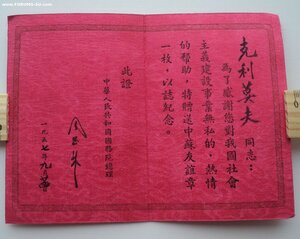 克利莫夫同志：
為了感謝您對我國社會
主義建設事業無私的、熱情
的幫助，特贈送中蘇友誼章
一枚，以誌紀念。
此證
中華人民共和國國務院總理
周恩来
一九五七年九月